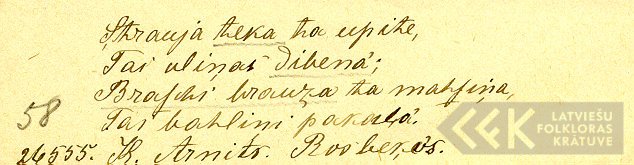 Strauja teka ta upite,
Tai oliņas dibenā;
Braschi brauza ta mahsiņa,
Tai bahlini pakaļâ.
58
26555. K. Arnits. Roobežôs.
LATVIEŠU
FOLKLORAS
KRĀTUVE